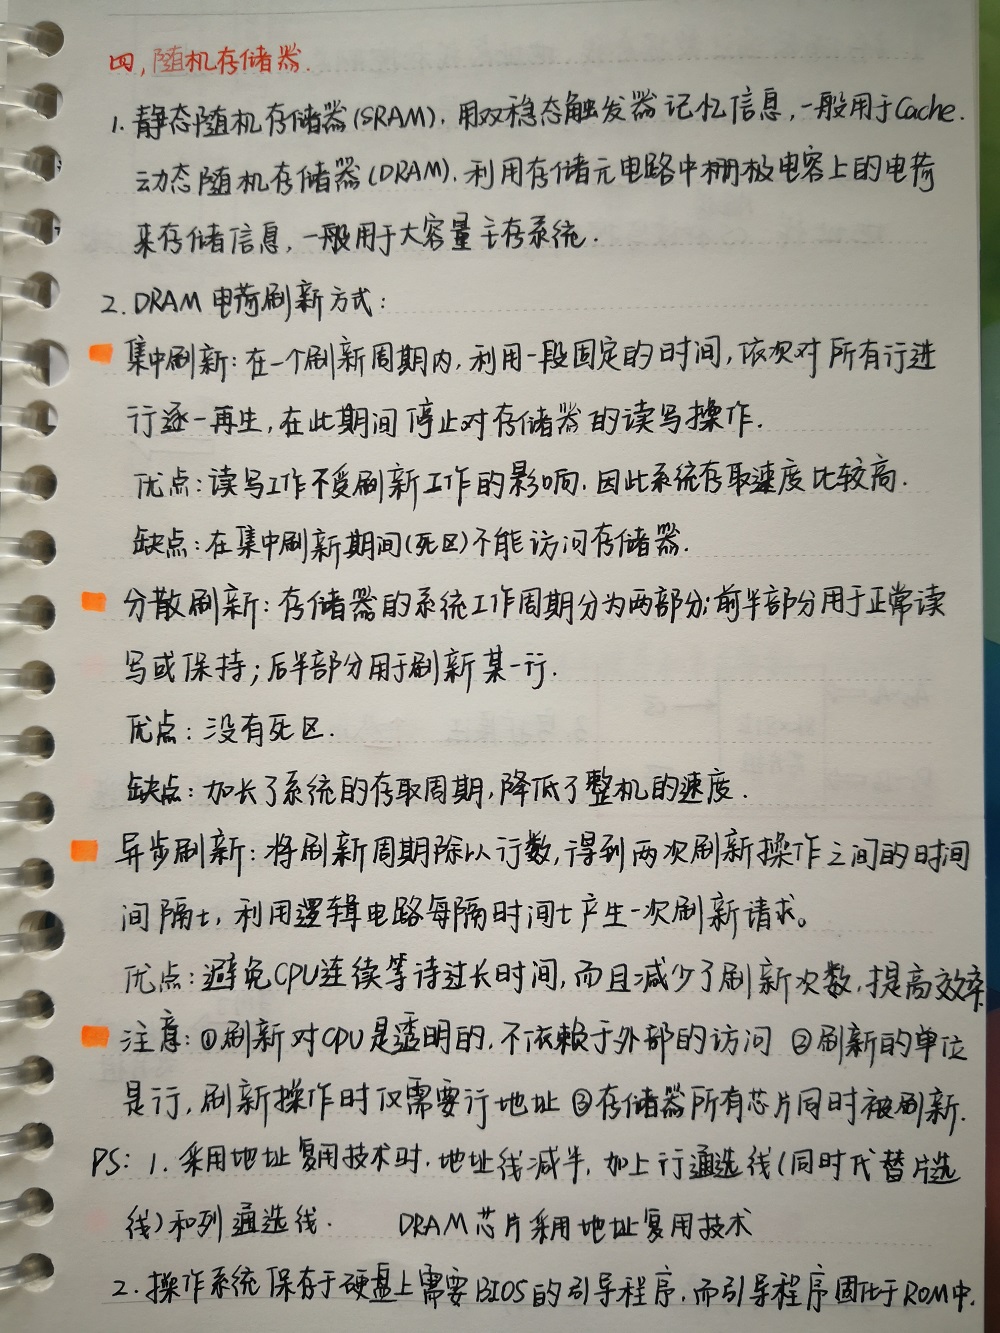 四，随机存储器.
1. 静态随机存储器(SRAM)，用双稳态触发器记忆信息，一般用于Cache.
动态随机存储器(DRAM)，利用存储元电路中栅极电容上的电荷
来存储信息，一般用于大容量主存系统.
2. DRAM 电荷刷新方式：
集中刷新：在一个刷新周期内，利用一段固定的时间，依次对所有行进
行逐一再生，在此期间停止对存储器的读写操作.
优点：读写工作不受刷新工作的影响，因此系统存取速度比较高.
缺点：在集中刷新期间(死区)不能访问存储器.
分散刷新：存储器的系统工作周期分为两部分；前半部分用于正常读
写或保持；后半部分用于刷新某一行.
优点：没有死区.
缺点：加长了系统的存取周期，降低了整机的速度.
异步刷新：将刷新周期除以行数，得到两次刷新操作之间的时间
间隔t，利用逻辑电路每隔时间t产生一次刷新请求。
优点：避免CPU连续等待过长时间，而且减少了刷新次数，提高效率
注意：①刷新对CPU是透明的，不依赖于外部的访问 ②刷新的单位
是行，刷新操作时仅需要行地址 ③存储器所有芯片同时被刷新.
PS: 1. 采用地址复用技术时，地址线减半，加上行通选线(同时代替片选
线)和列通选线. DRAM芯片采用地址复用技术
2. 操作系统保存于硬盘上需要BIOS的引导程序，而引导程序固化于ROM中.